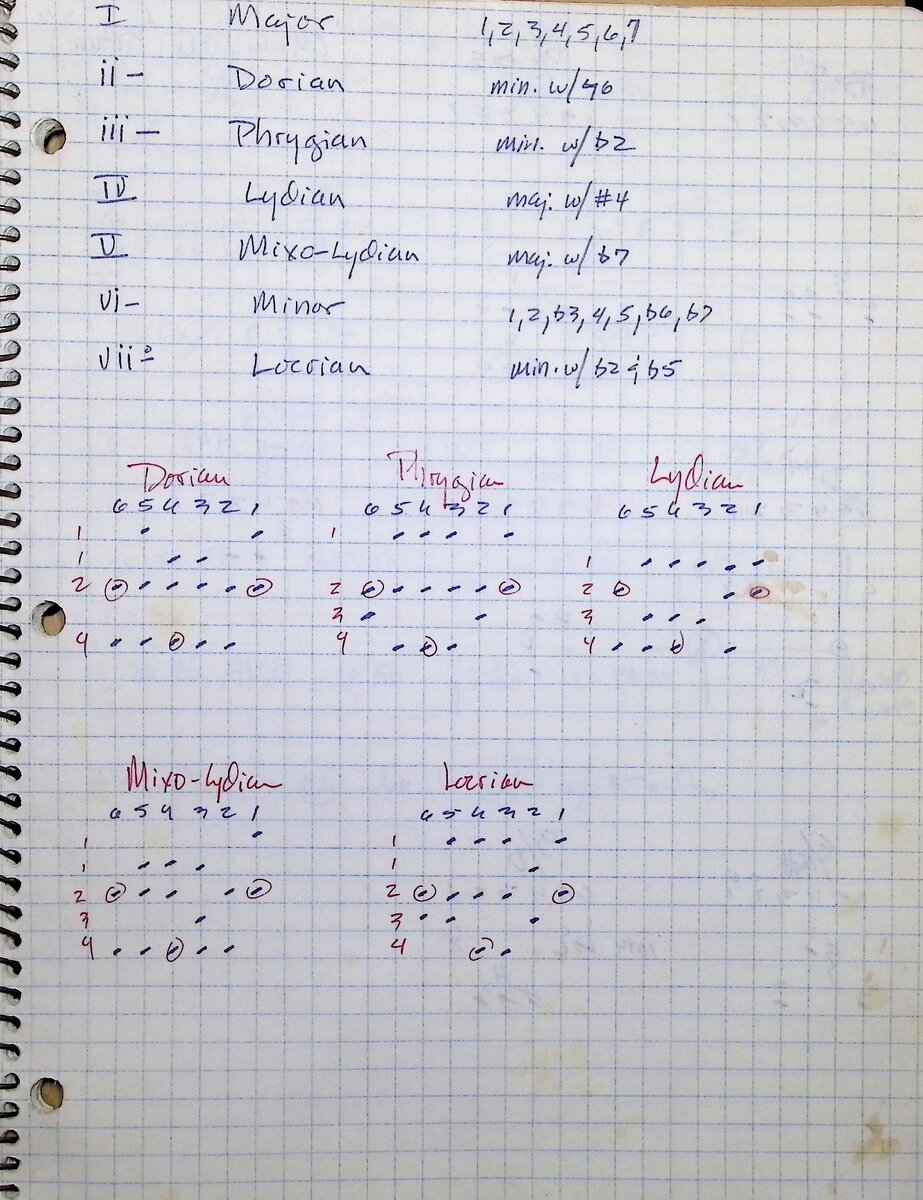 I Major 1,2,3,4,5,6,7
ii- Dorian min. w/♮6
iii- Phrygian min. w/b2
IV Lydian maj. w/#4
V Mixo-Lydian maj. w/b7
vi- Minor 1,2,b3,4,5,b6,b7
vii°- Locrian min. w/b2 & b5
Dorian Phrygian Lydian
6 5 4 3 2 1 6 5 4 3 2 1 6 5 4 3 2 1
1 1
1 1
2 2 2
3 3
4 4 4
Mixo-Lydian Locrian
6 5 4 3 2 1 6 5 4 3 2 1
1 1
1 1
2 2
3 3
4 4